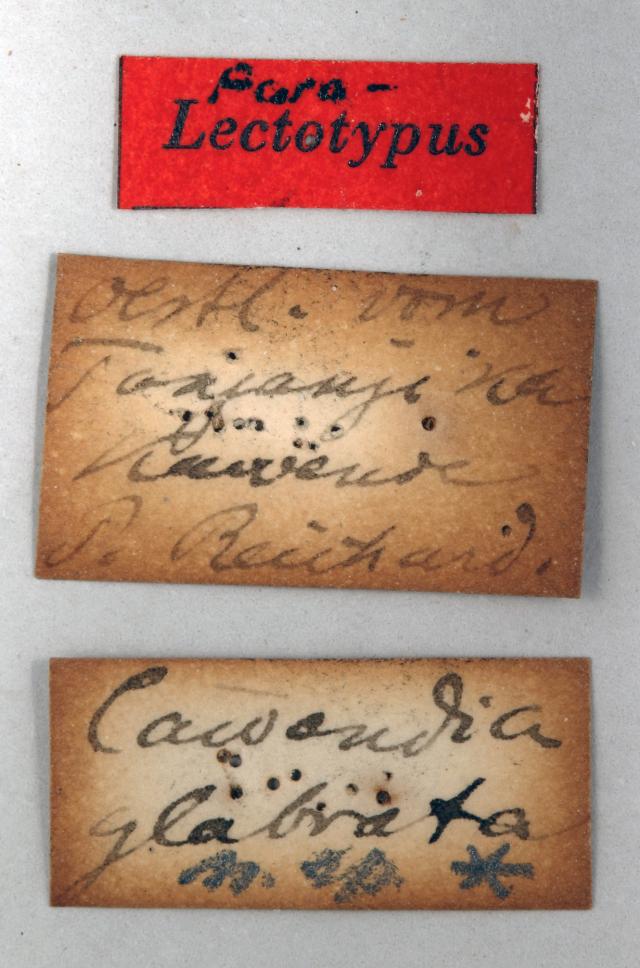 Para-
Lectotypus
oestl. vom
Tanjanji'ka
Kawende
P. Reichard.
Cawendia
glabrata
n. sp. *